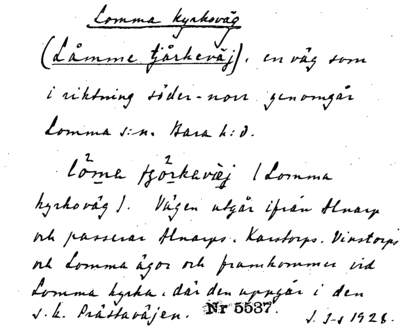 Lomma kyrkoväg
(Låmme tjårkeväj), en väg som
i riktning söder-norr genomgår
Lomma s:n. Bara h:d.
lōma tjörkavāj (Lomma
kyrkoväg). Vägen utgår ifrån Alnarp
och passerar Alnarps, Karstorps, Vinstorps
och Lomma ägor och framkommer vid
Lomma kyrka, där den uppgår i den
s.k. Prästaväjen. Nr 5537.
J. I-s 1928.